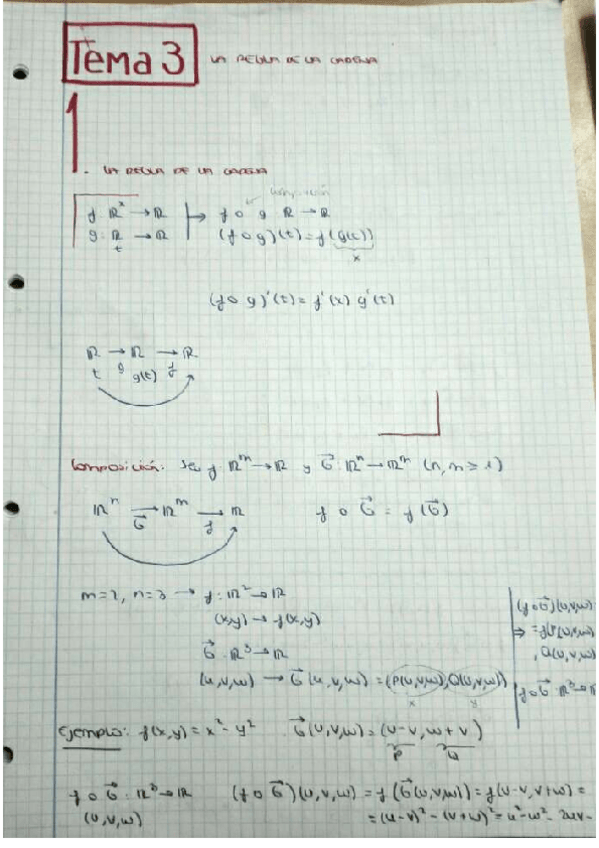 Tema 3 LA REGLA DE LA CADENA
1. LA REGLA DE LA CADENA
composición
f: ℝ → ℝ | → f ∘ g: ℝ → ℝ
x
g: ℝ → ℝ (f ∘ g)(t) = f(g(t))
t x
(f ∘ g)'(t) = f'(x) g'(t)
ℝ → ℝ → ℝ
t g g(t) f
Composición: Sea f: ℝᵐ → ℝ y G⃗: ℝⁿ → ℝᵐ (n, m ≥ 1)
ℝⁿ → ℝᵐ → ℝ f ∘ G⃗ = f(G⃗)
G⃗ f
m=2, n=3 → f: ℝ² → ℝ
(x,y) → f(x,y)
G⃗: ℝ³ → ℝ
(u,v,w) → G⃗(u,v,w) = (P(u,v,w), Q(u,v,w))
(f∘G⃗)(u,v,w)
⇒ =f(P(u,v,w)
Q(u,v,w)
f∘G⃗: ℝ³→ℝ
Ejemplo: f(x,y) = x² - y² G⃗(u,v,w) = (u-v, w+v)
f ∘ G⃗: ℝ³ → ℝ (f ∘ G⃗)(u,v,w) = f(G⃗(u,v,w)) = f(u-v, v+w) =
(u,v,w) = (u-v)² - (v+w)² = u² - w² - 2uv -